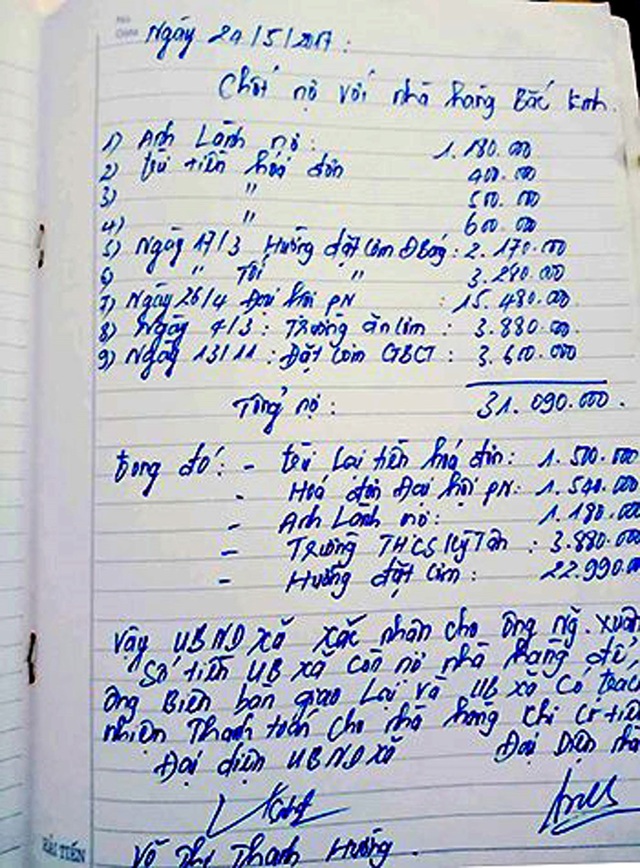 No.
Date
Ngày 24/5/2017:
Chốt nợ với nhà hàng Bắc Kinh.
1) Anh Lành nợ: 1.180.000
2) trừ tiền hóa đơn 400.000
3) " 500.000
4) " 600.000
5) Ngày 17/3 Hường đặt cơm ĐBống: 2.170.000
6) " Tối " 3.280.000
7) Ngày 26/4 Đại hội PN : 15.480.000
8) Ngày 4/3: Trường ăn cơm : 3.880.000
9) Ngày 13/11: Đặt cơm GBCT: 3.600.000
Tổng nợ: 31.090.000.
trong đó: - trừ lại tiền hoá đơn: 1.500.000
- Hoá đơn Đại hội PN: 1.540.000
- Anh Lành nợ: 1.180.000
- Trường THCS Kỳ Tân: 3.880.000
- Hường đặt cơm: 22.990.000
Vậy UBND xã xác nhận cho ông Ng. Xuân
Số tiền UB xã còn nợ nhà hàng để,
ông Biên bàn giao lại và UB xã có trách
nhiện Thanh toán cho nhà hàng chi cứ tiề
Đại diện UBND xã Đại Diện nhà
Võ Thị Thanh Hường.
HẢI TIẾN